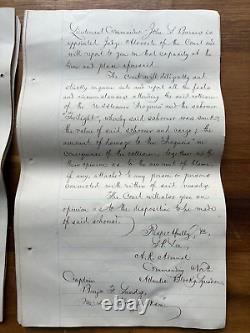 Lieutenant Commander John S. Barnes is
appointed Judge Advocate of the Court and
will report to you in that capacity at the
time and place aforesaid.
The Court will diligently and
strictly inquire into and report all the facts
and circumstances attending the said collision
of the US Steamer "Iroquois" and the schooner
"Twilight", whereby said schooner was sunk,
the value of said schooner and cargo, the
amount of damage to the "Iroquois" in
consequence of the collision, together with
their opinion as to the amount of blame
if any, attached to any person or persons
connected with either of said vessels.
The Court will also give an
opinion as to the disposition to be made
of said schooner.
Respectfully, &c,
S. P. Lee,
A. R. Admiral
Commanding North
Atlantic Block'g Squadron
Captain
Benj. F. Sands,